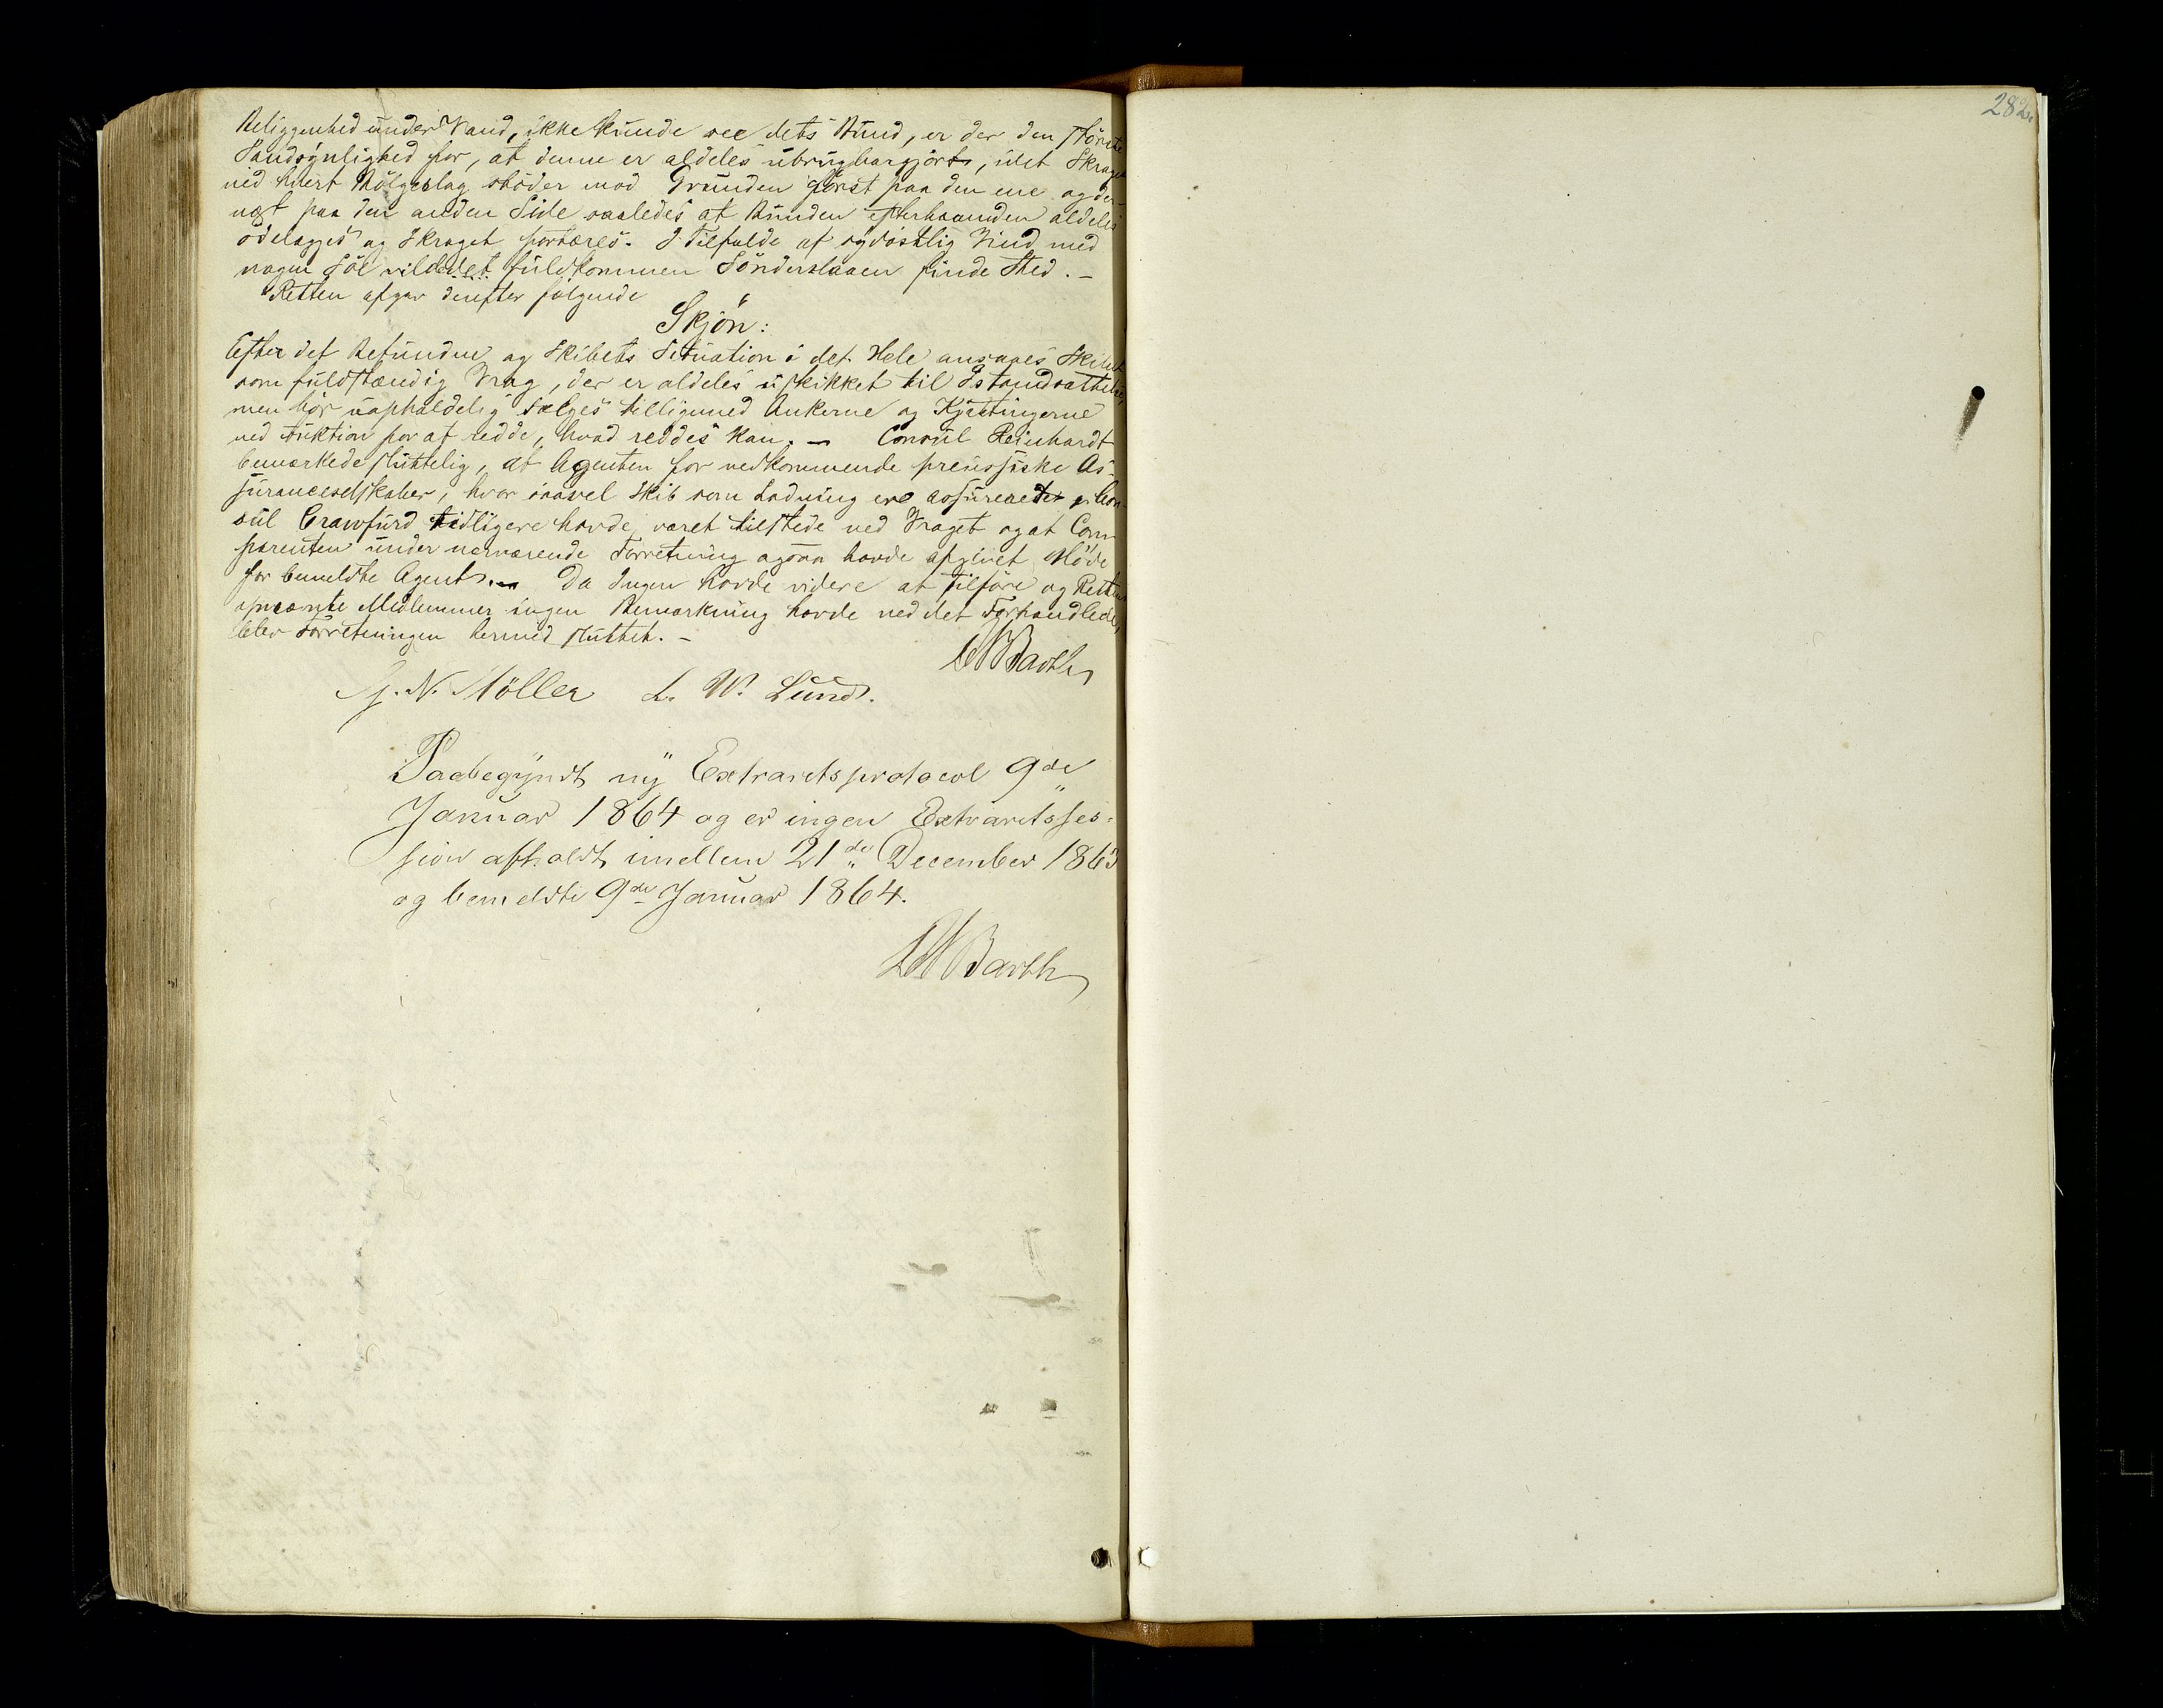 Beliggenhed under Vand, ikke kunde see dets Bund, er der den störste
Sandsynlighed for, at denne er aldeles ubrugbargjort, idet Skroget
ved hvert Bölgeslag stöder mod Grunden först paa den ene og der-
næst paa den anden Side saaledes at Bunden efterhaanden aldeles
ödelægges og Skroget fortæres. I Tilfælde af sydöstlig Vind med
nogen Söe vilde det fuldkommen Sönderslaaen finde Sted. -
Retten afgav derefter fölgende
Skjön:
Efter det Befundne og Skibets Situation i det Hele ansaaes Skibet
som fuldstændig Vrag, der er aldeles uskikket til Istandsættelse,
men bör uopholdelig sælges tilligemed Ankerne og Kjættingerne
ved Auktion for at redde, hvad reddes kan. - Consul Reinhardt
bemærkede sluttelig, at Agenten for vedkommende preussiske As-
suranceselskaber, hvor saavel Skib som Ladning ere assurerede, Con-
sul Crawfurd tidligere havde været tilstede ved Vraget og at Com-
parenten under nærværende Forretning ogsaa havde afgivet Möde
for bemeldte Agent. - Da Ingen havde videre at tilföre og Rettens
opnævnte Medlemmer ingen Bemærkning havde ved det Forhandlede,
blev Forretningen hermed sluttet. -
Barth
G. N. Möller L. W. Lund.
Paabegyndt ny Extraretsprotocol 9de
Januar 1864 og er ingen Extraretsses-
sion afholdt imellem 21de December 1863
og bemeldte 9de Januar 1864.
Barth
282